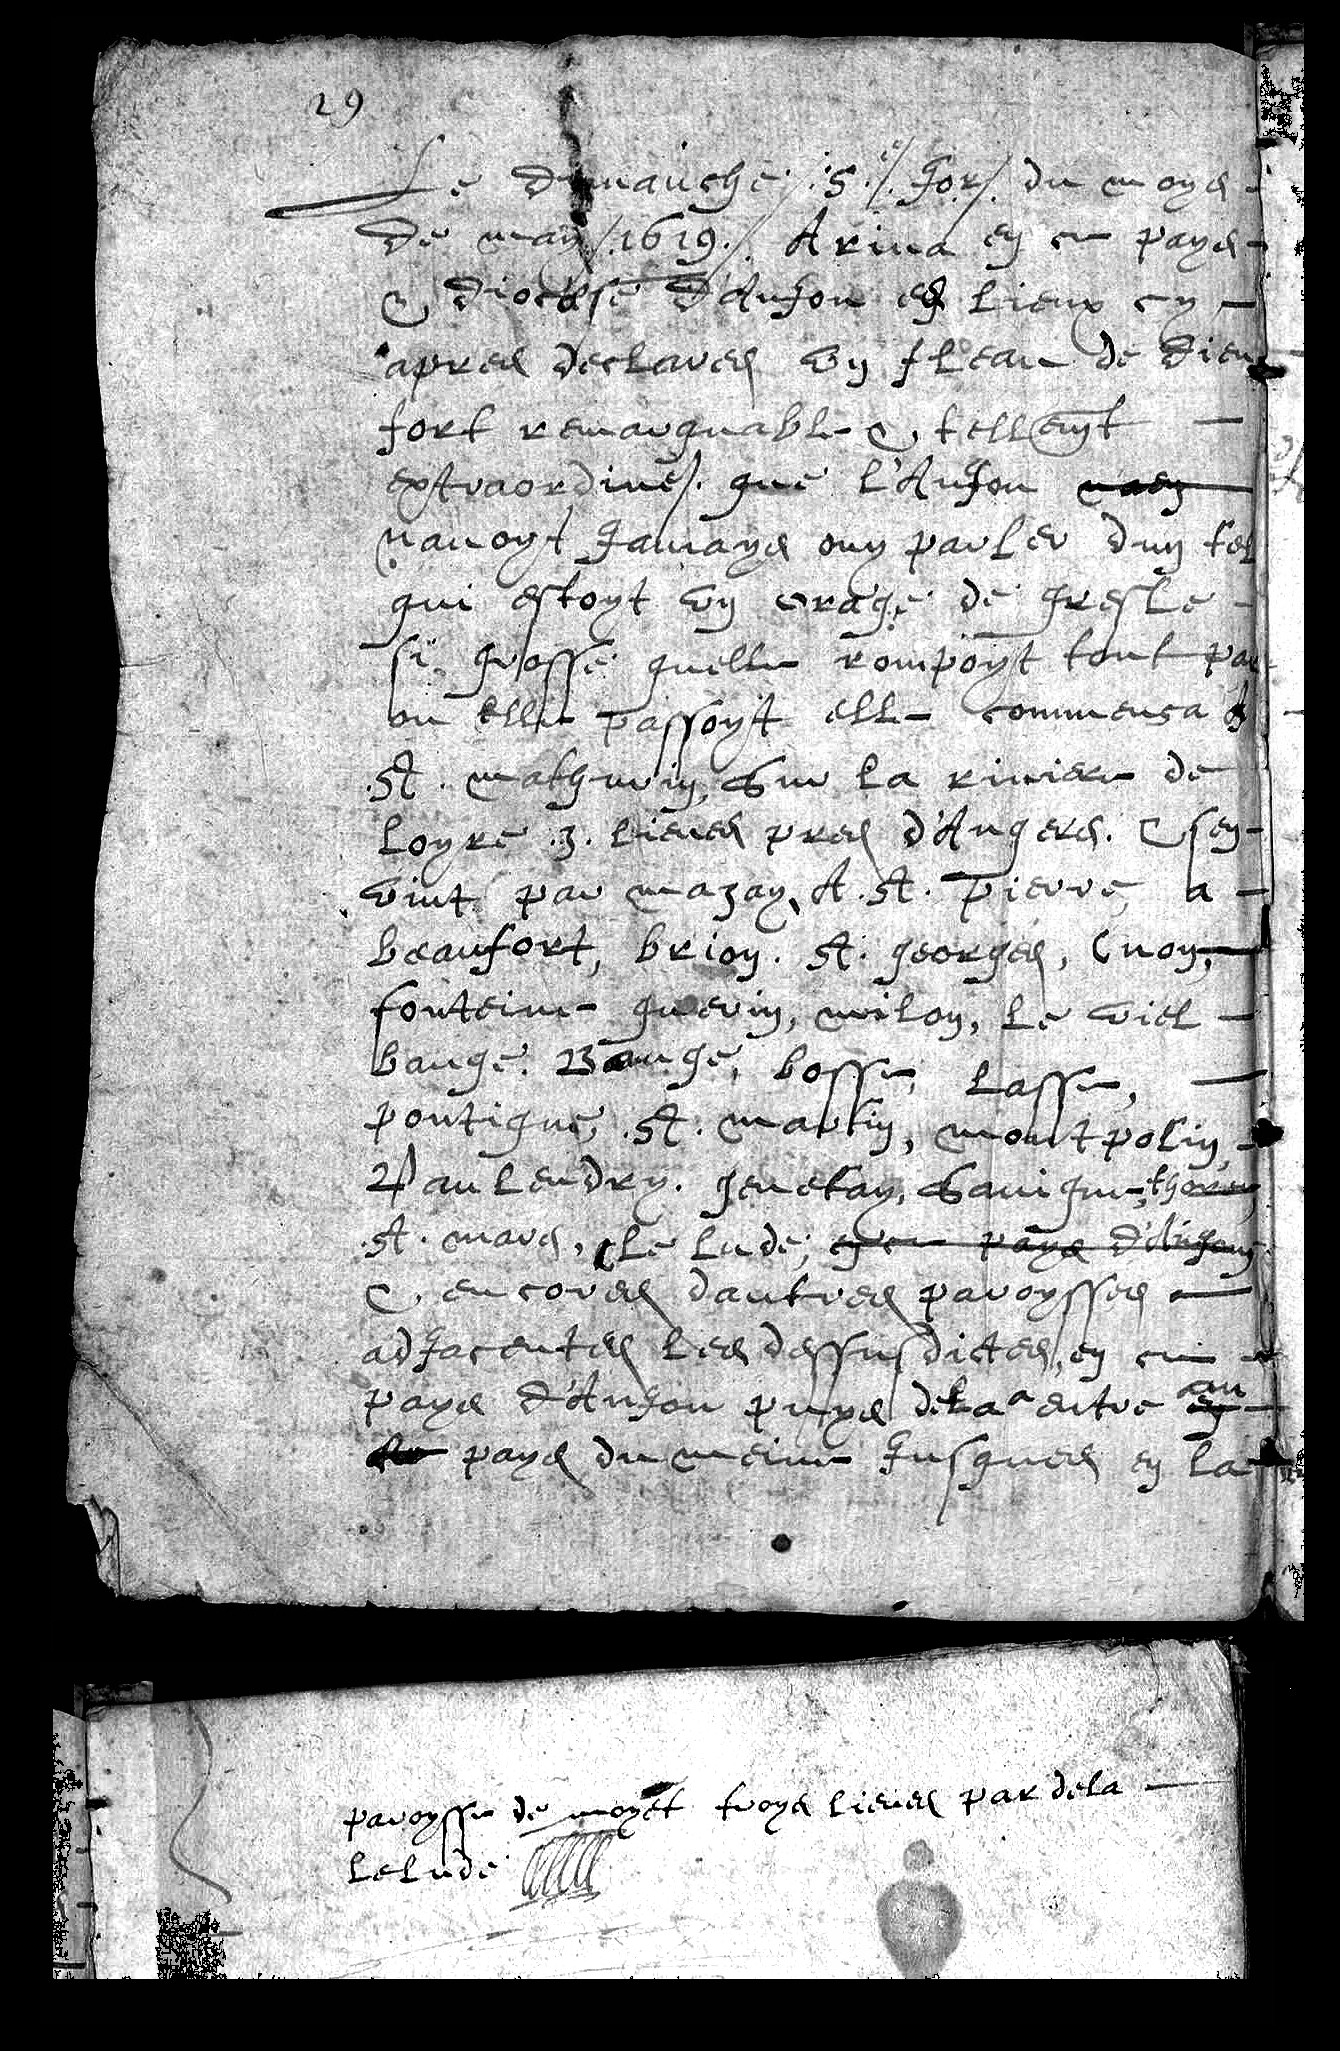 29
Le dimanche /.5.e/. Jor/. du moys -
de may /.1619./. Ariva en ce pays -
& diocese d'Anjou es lieux cy -
apres declares un fleau de dieu
fort remarquable & tellemt -
extraordine/. que l'Anjou
navoyt Jamays ouy parler dun tel
qui estoyt un orage de gresle -
si grosse quelle rompoyt tout par
ou elle passoyt elle commenca a
.St. mathurin, sur la riviere de
Loyre .3. lieues pres d'Angers. & sen -
vint par mazay, A .St. pierre, a -
beaufort, brion. St. georges, Cuon, -
fonteine guerin, milon, le viel -
bauge. Bauge, bosse, lasse, -
pontigne, .St. martin, montpolin, -
Vaulendry. genetay, savigne, thorein
.St. mars, le lude, en ce pays d'Anjou
& encores dautres paroysses -
adjacentes les dessusdictes, en ce -
pays d'Anjou puys dela a entre au
pays du meine Jusques en la
paroysse de moyet troys lieues par dela -
le lude